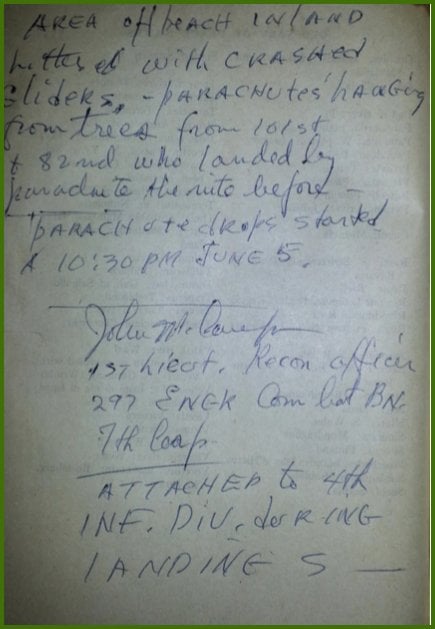 AREA off BEACH INLAND
littered with CRASHED
GLIDERS, - PARACHUTES hanging
from trees from 101st
+ 82nd who landed by
parachute the nite before -
PARACHUTE dROPS started
A 10:30 PM JUNE 5.
John
1st Lieut. Recon officer
297 ENGR Combat BN.
7th Corps
ATTACHED to 4th
INF. DIV. durING
LANDINGS —